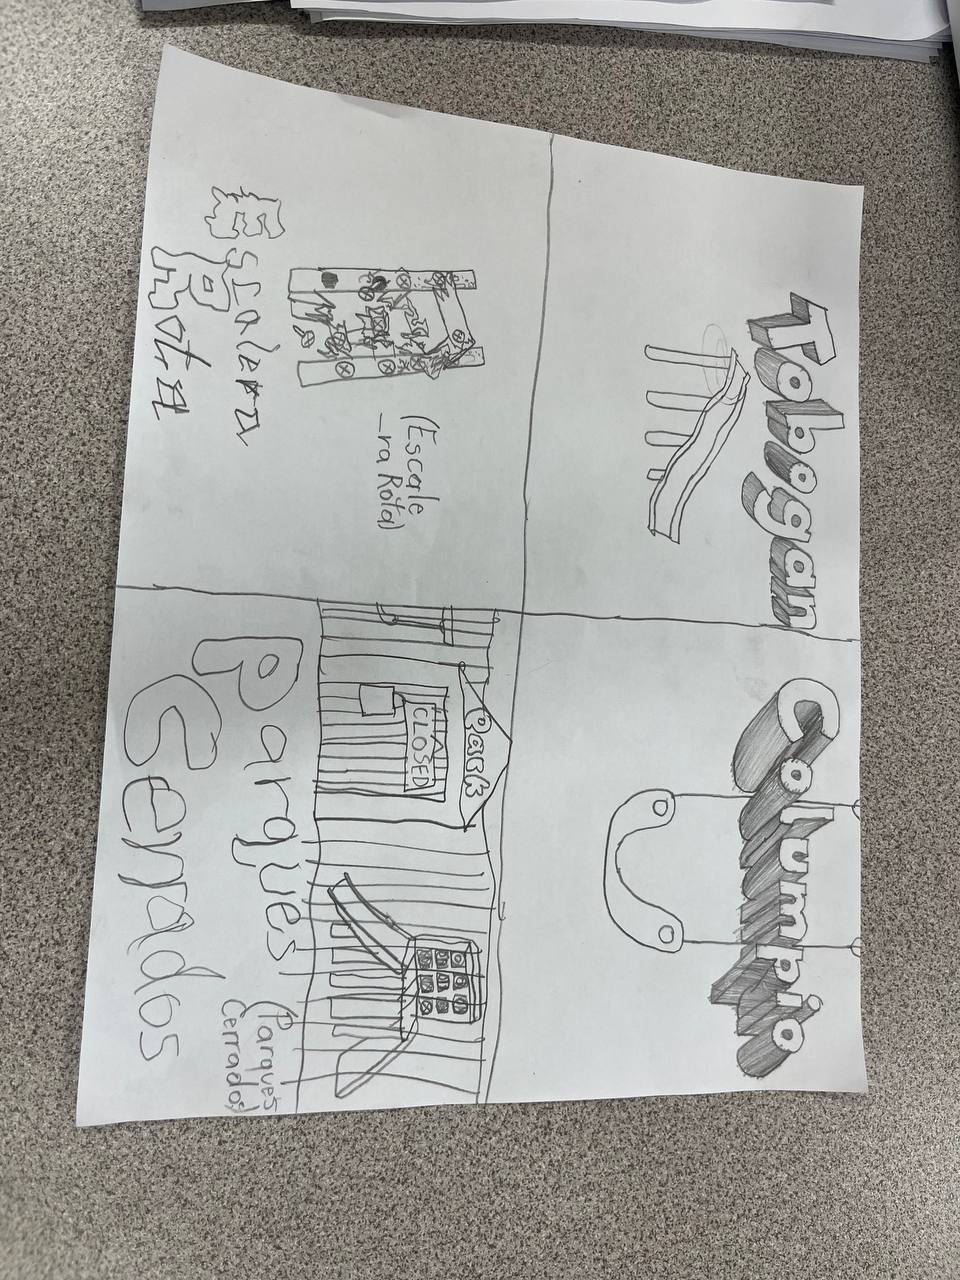 Tobogan
Columpio
(Escale
-ra Rota)
Escalera
Rota
Park
CLOSED
Parques
Cerrados
(Parques
Cerrados)